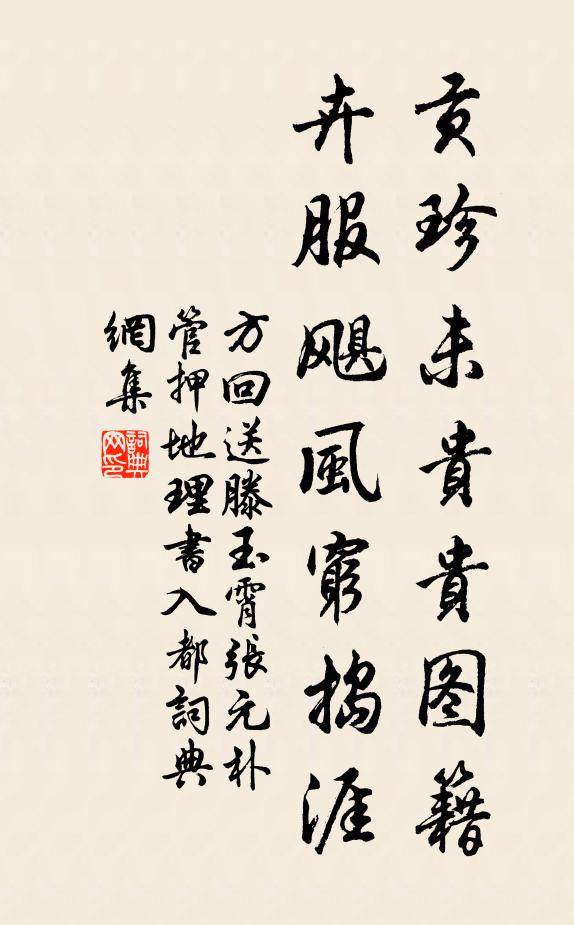 贡珍未貴貴图籍
卉服飓風窮搗涯
方回送滕玉霄張元朴
管押地理書入都詞典
網集
詞典网印